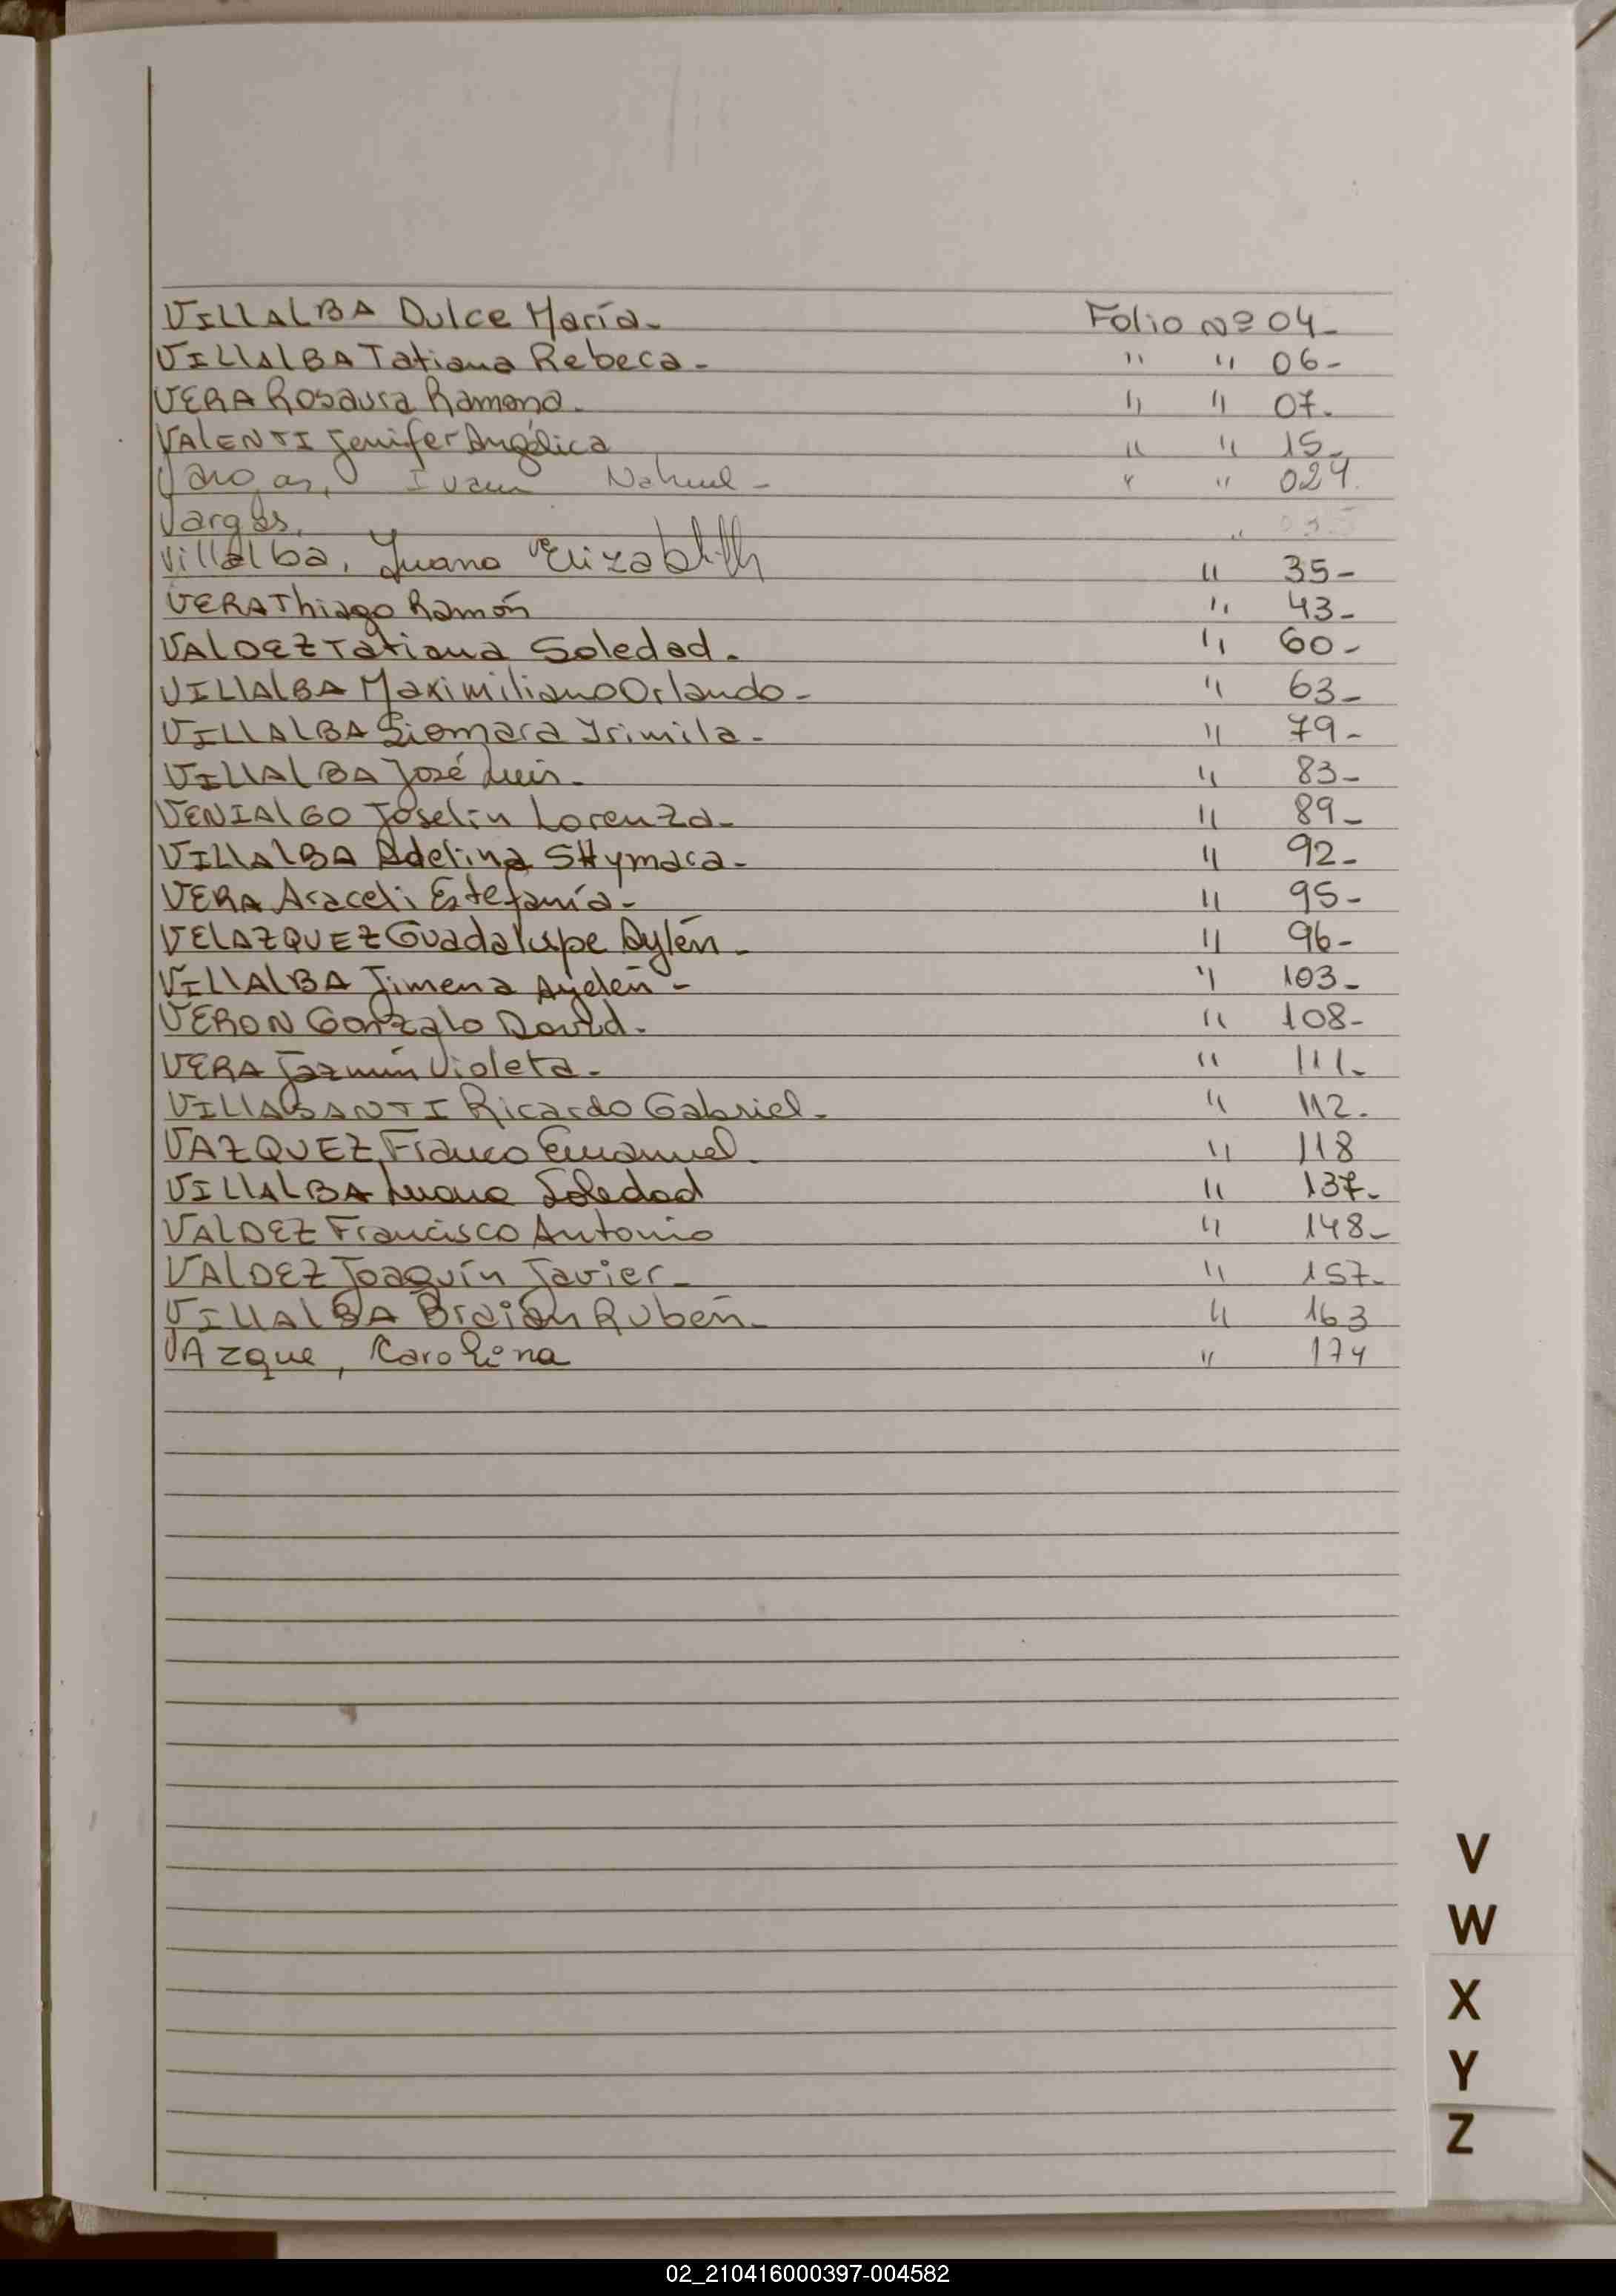 VILLALBA Dulce María- Folio Nº 04-
VILLALBA Tatiana Rebeca- " " 06-
VERA Rosaura Ramona. " " 07.
VALENTI Jenifer Angélica " " 15-
Ivan Nahuel - " " 024.
Vargas, "
Villalba, Juana Elizabeth " 35-
VERA Thiago Ramón " 43-
VALDEZ Tatiana Soledad. " 60-
VILLALBA Maximiliano Orlando- " 63-
VILLALBA Siomara Irimila- " 79-
VILLALBA José Luis. " 83-
VENIALGO Joselin Lorenza- " 89-
VILLALBA Adelina SHymara- " 92-
VERA Araceli Estefanía- " 95-
VELAZQUEZ Guadalupe Aylén- " 96-
VILLALBA Jimena Ayelén- " 103-
VERON Gonzalo David. " 108-
VERA Jazmín Violeta- " 111-
VILLASANTI Ricardo Gabriel- " 112.
VAZQUEZ, Franco Emanuel. " 118
VILLALBA Luana Soledad " 137-
VALDEZ Francisco Antonio " 148-
VALDEZ Joaquín Javier- " 157-
VILLALBA Braian Rubén- " 163
VAzque, Carolina " 174
V
W
X
Y
Z
02_210416000397-004582